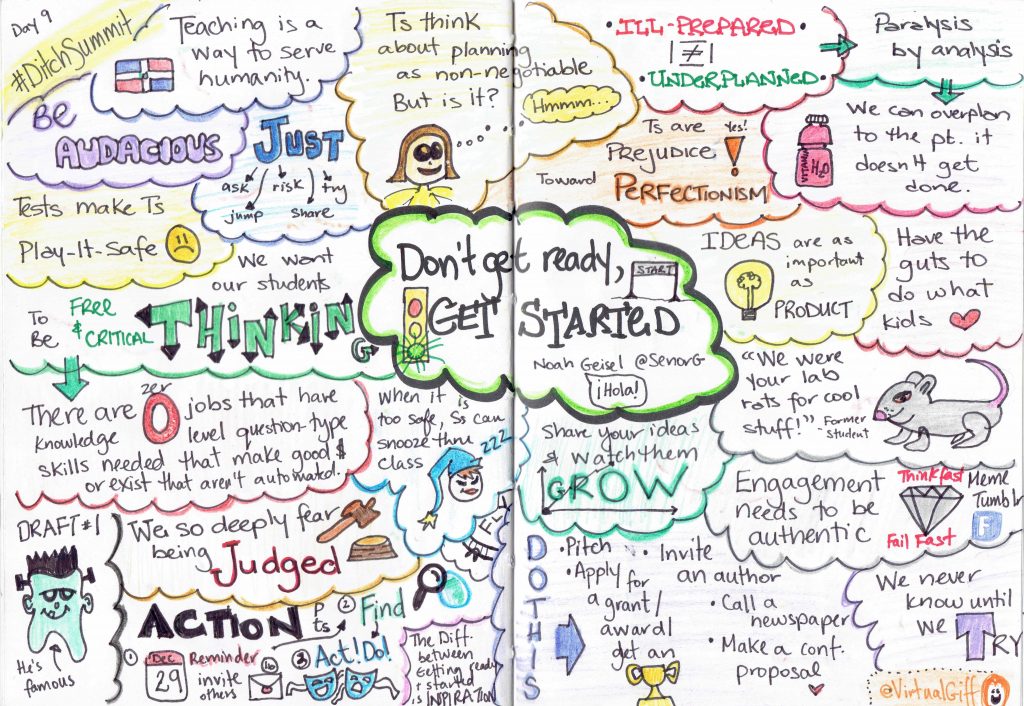 Day 9
#DitchSummit
Teaching is a
way to serve
humanity.
Ts think
about planning
as non-negotiable
But is it?
Hmmm...
• ILL-PREPARED
| ≠ |
• UNDERPLANNED •
Paralysis
by analysis
BE
AUDACIOUS
JUST
ask risk try
jump share
Ts are
PREJUDICE
Yes!
Toward
PERFECTIONISM
VITAMIN
H2O
We can overplan
to the pt. it
doesn't get
done.
Tests make Ts
Play-It-Safe
We want
our students
To
Be
FREE
& CRITICAL
THINKING
Don't get ready,
GET STARTED
START
Noah Geisel @SenorG
¡Hola!
IDEAS are as
important
as
PRODUCT
Have the
guts to
do what
kids
There are zero jobs that have
knowledge level question-type
skills needed that make good $
or exist that aren't automated.
When it is
too safe, Ss can
snooze thru
class
zzz
Share your ideas
& watch them
GROW
"We were
your lab
rats for cool
stuff!" - Former
student
Engagement
needs to be
authentic
Think fast
Fail Fast
Meme
Tumblr
F
DRAFT #1
He's
famous
We so deeply fear
being
Judged
HELP
ACTION
Pts
① DEC
29
Reminder
invite
others
② Find
③ Act! Do!
The Diff.
between
Getting ready
& started
is INPIRATION
DO THIS
• Pitch
• Apply for
a grant/
award/
get an
• Invite
an author
• Call a
newspaper
• Make a conf.
proposal
We never
know until
we TRY
@VirtualGiff